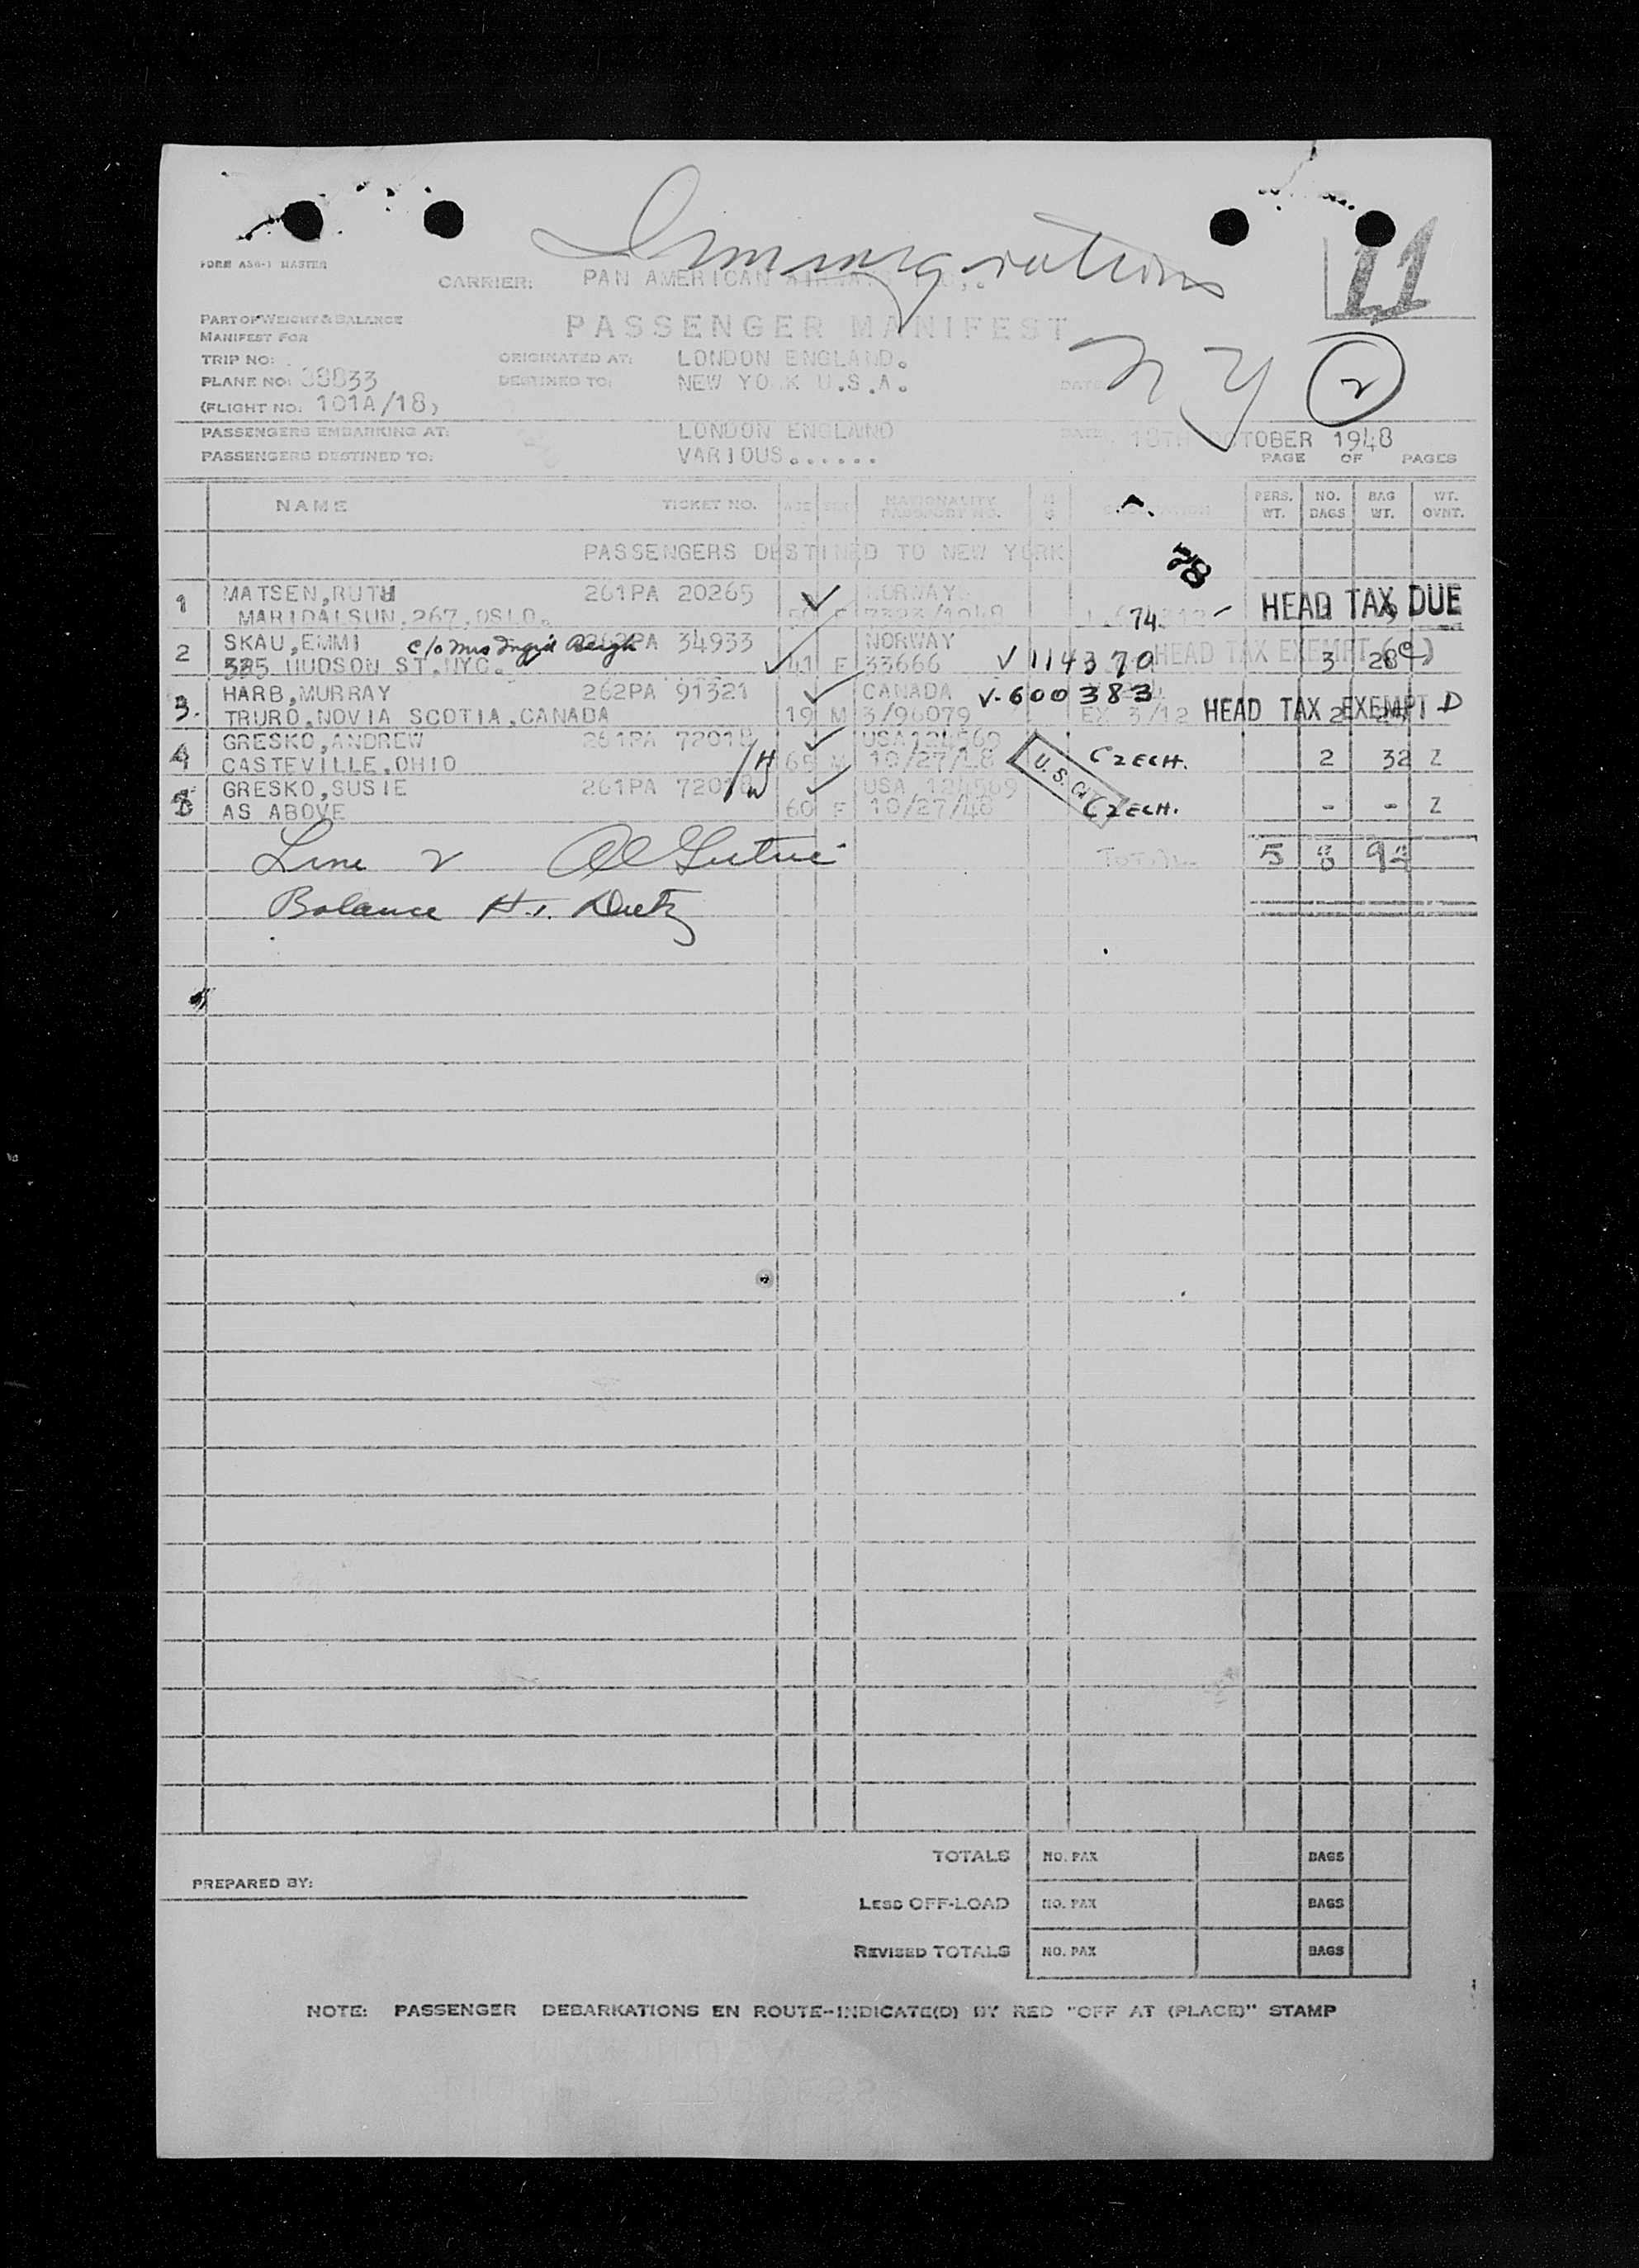 Immigration
11
FORM A56-1 MASTER
CARRIER: PAN AMERICAN AIRWAYS
PART OF WEIGHT & BALANCE
MANIFEST FOR
PASSENGER MANIFEST
N Y 2
TRIP NO:
ORIGINATED AT: LONDON ENGLAND.
PLANE NO: 88833
DESTINED TO: NEW YO K U.S.A. DATE
(FLIGHT NO: 101A/18)
PASSENGERS EMBARKING AT: LONDON ENGLAND DATE 18TH OCTOBER 1948
PASSENGERS DESTINED TO: VARIOUS......
PAGE OF PAGES
NAME TICKET NO. AGE SEX NATIONALITY PASSPORT NO. PERS. WT. NO. BAGS BAG WT. WT. OVNT.
PASSENGERS DESTINED TO NEW YORK
28
1 MATSEN,RUTH 261PA 20265 NORWAY
MARIDALSUN.267.OSLO. F 74 HEAD TAX DUE
2 SKAU,EMMI c/o Mrs Ingrid 262PA 34933 NORWAY
535 HUDSON ST.NYC. 41 F 33666 V 114370 HEAD TAX EXEMPT (e) 3 28
3. HARB,MURRAY 262PA 91321 CANADA V-600383
TRURO,NOVIA SCOTIA,CANADA 19 M 3/96079 EX 3/12 HEAD TAX EXEMPT D
4 GRESKO,ANDREW 261PA 72018 USA 124569
CASTEVILLE,OHIO H 65 M 10/27/48 U.S. CZECH. 2 32 Z
5 GRESKO,SUSIE 261PA 72018 USA 124569
AS ABOVE W 60 F 10/27/48 CZECH. - - Z
Line 2
TOTAL 5
Balance H.
TOTALS NO. PAX BAGS
PREPARED BY:
LESS OFF-LOAD NO. PAX BAGS
REVISED TOTALS NO. PAX BAGS
NOTE: PASSENGER DEBARKATIONS EN ROUTE--INDICATE(D) BY RED "OFF AT (PLACE)" STAMP